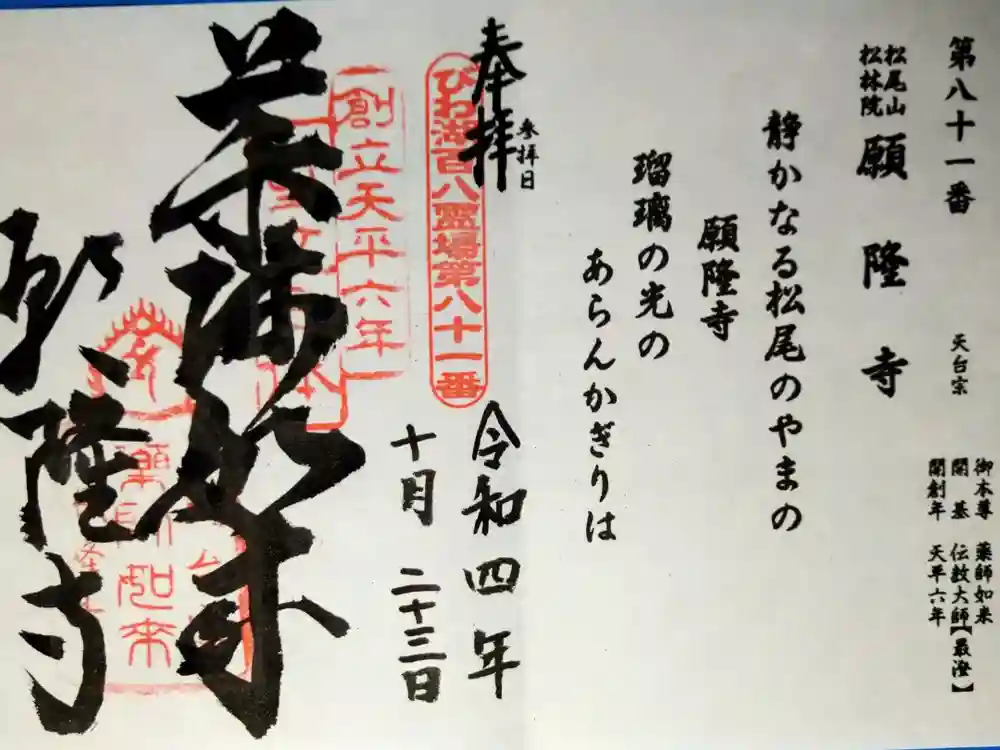 第八十一番 天台宗
御本尊 薬師如来
開基 伝教大師【最澄】
開創年 天平六年
松尾山
松林院
願隆寺
静かなる松尾のやまの
願隆寺
瑠璃の光の
あらんかぎりは
参拝日
奉拝
びわ湖百八霊場第八十一番
令和四年
十月二十三日
創立天平六年
薬師如来
願隆寺
如来